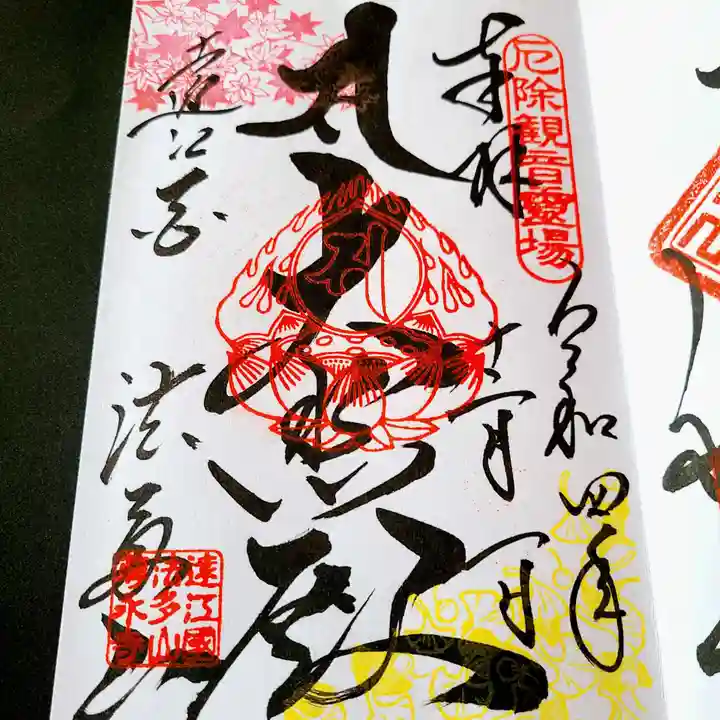 厄除観音霊場
奉拝
令和四年
十一月一日
大悲殿
遠江国
法多山
遠江國
法多山
尊永寺